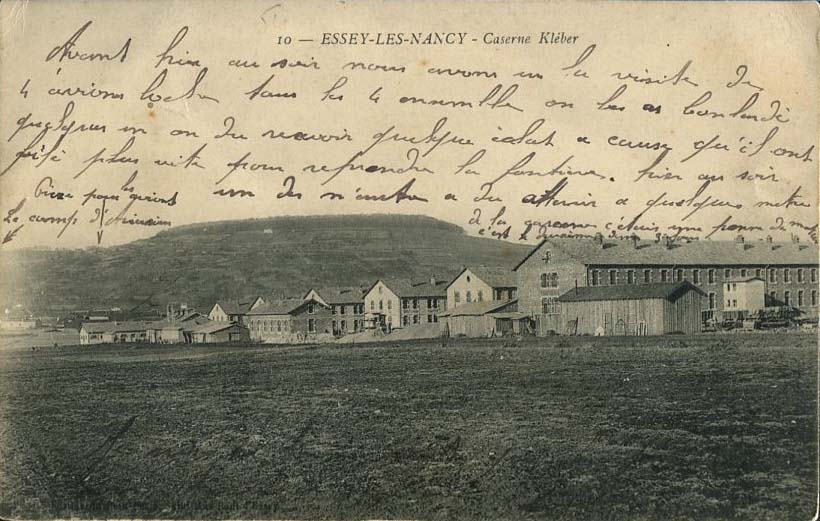 10 — ESSEY-LES-NANCY - Caserne Kléber
Avant hier au soir nous avons eu la visite de
4 avions boche tous les 4 ensemble on les as bombardé
quelques un on du recevoir quelque éclat a cause qu'il ont
filé plus vite pour reprendre la frontière. hier au soir
un des n'entre a du atterir a quelques metre
de la caserne c'étais une panne de
c'est le deuxième
Pièce pour les
Le camp d'aviation